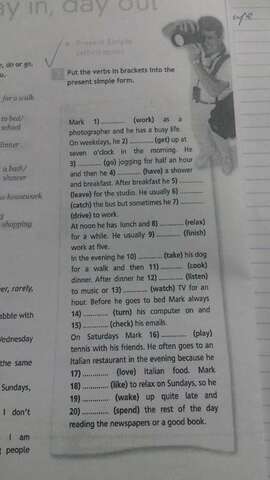 ay in, day out
Present Simple
Put the verbs in brackets into the
present simple form.
Mark 1) ............ (work) as a
photographer and he has a busy life.
On weekdays, he 2) ............ (get) up at
seven o'clock in the morning. He
3) ............ (go) jogging for half an hour
and then he 4) ............ (have) a shower
and breakfast. After breakfast he 5) ............
(leave) for the studio. He usually 6) ............
(catch) the bus but sometimes he 7) ............
(drive) to work.
At noon he has lunch and 8) ............ (relax)
for a while. He usually 9) ............ (finish)
work at five.
In the evening he 10) ............ (take) his dog
for a walk and then 11) ............ (cook)
dinner. After dinner he 12) ............ (listen)
to music or 13) ............ (watch) TV for an
hour. Before he goes to bed Mark always
14) ............ (turn) his computer on and
15) ............ (check) his emails.
On Saturdays Mark 16) ............ (play)
tennis with his friends. He often goes to an
Italian restaurant in the evening because he
17) ............ (love) Italian food. Mark
18) ............ (like) to relax on Sundays, so he
19) ............ (wake) up quite late and
20) ............ (spend) the rest of the day
reading the newspapers or a good book.
, do or go,
for a walk
to bed/
school
dinner
a bath/
shower
housework
shopping
er, rarely,
abble with
Wednesday
the same
Sundays,
I don't
I am
people